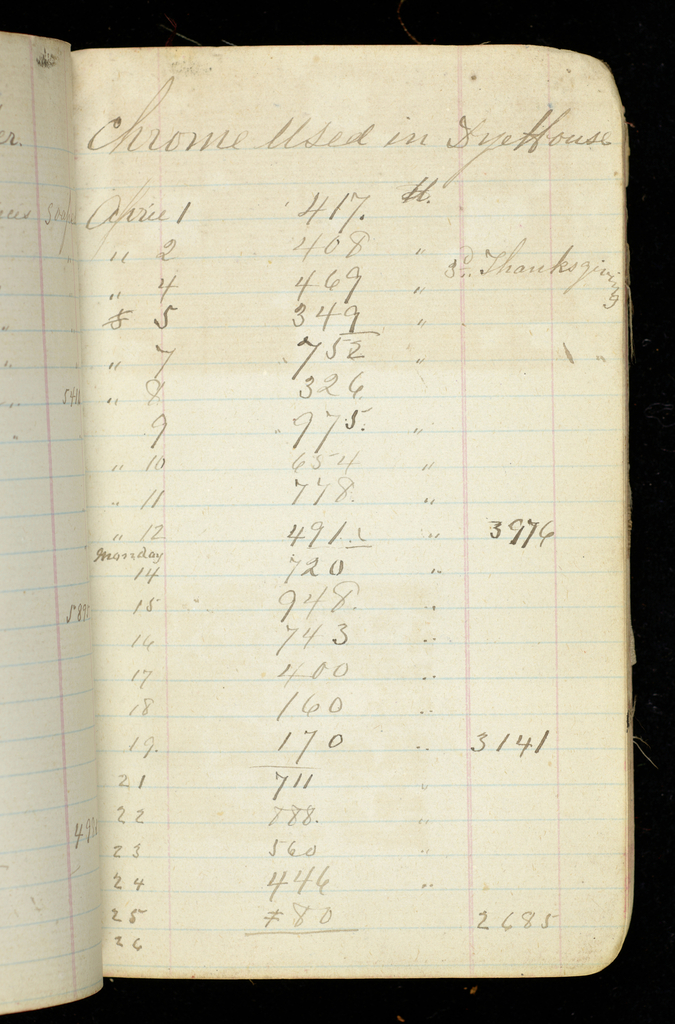 Chrome Used in DyeHouse
April 1 417. lb.
" 2 408 "
3d. Thanksgiving
" 4 469 "
5 349 "
" 7 752 "
" 8 326
9 975. "
" 10 654 "
" 11 778. "
" 12 491. " 3976
Monday
14 720 "
15 948. "
16 743 "
17 400 "
18 160 "
19. 170 " 3141
21 711 "
22 888. "
23 560 "
24 446 "
25 80 2685
26